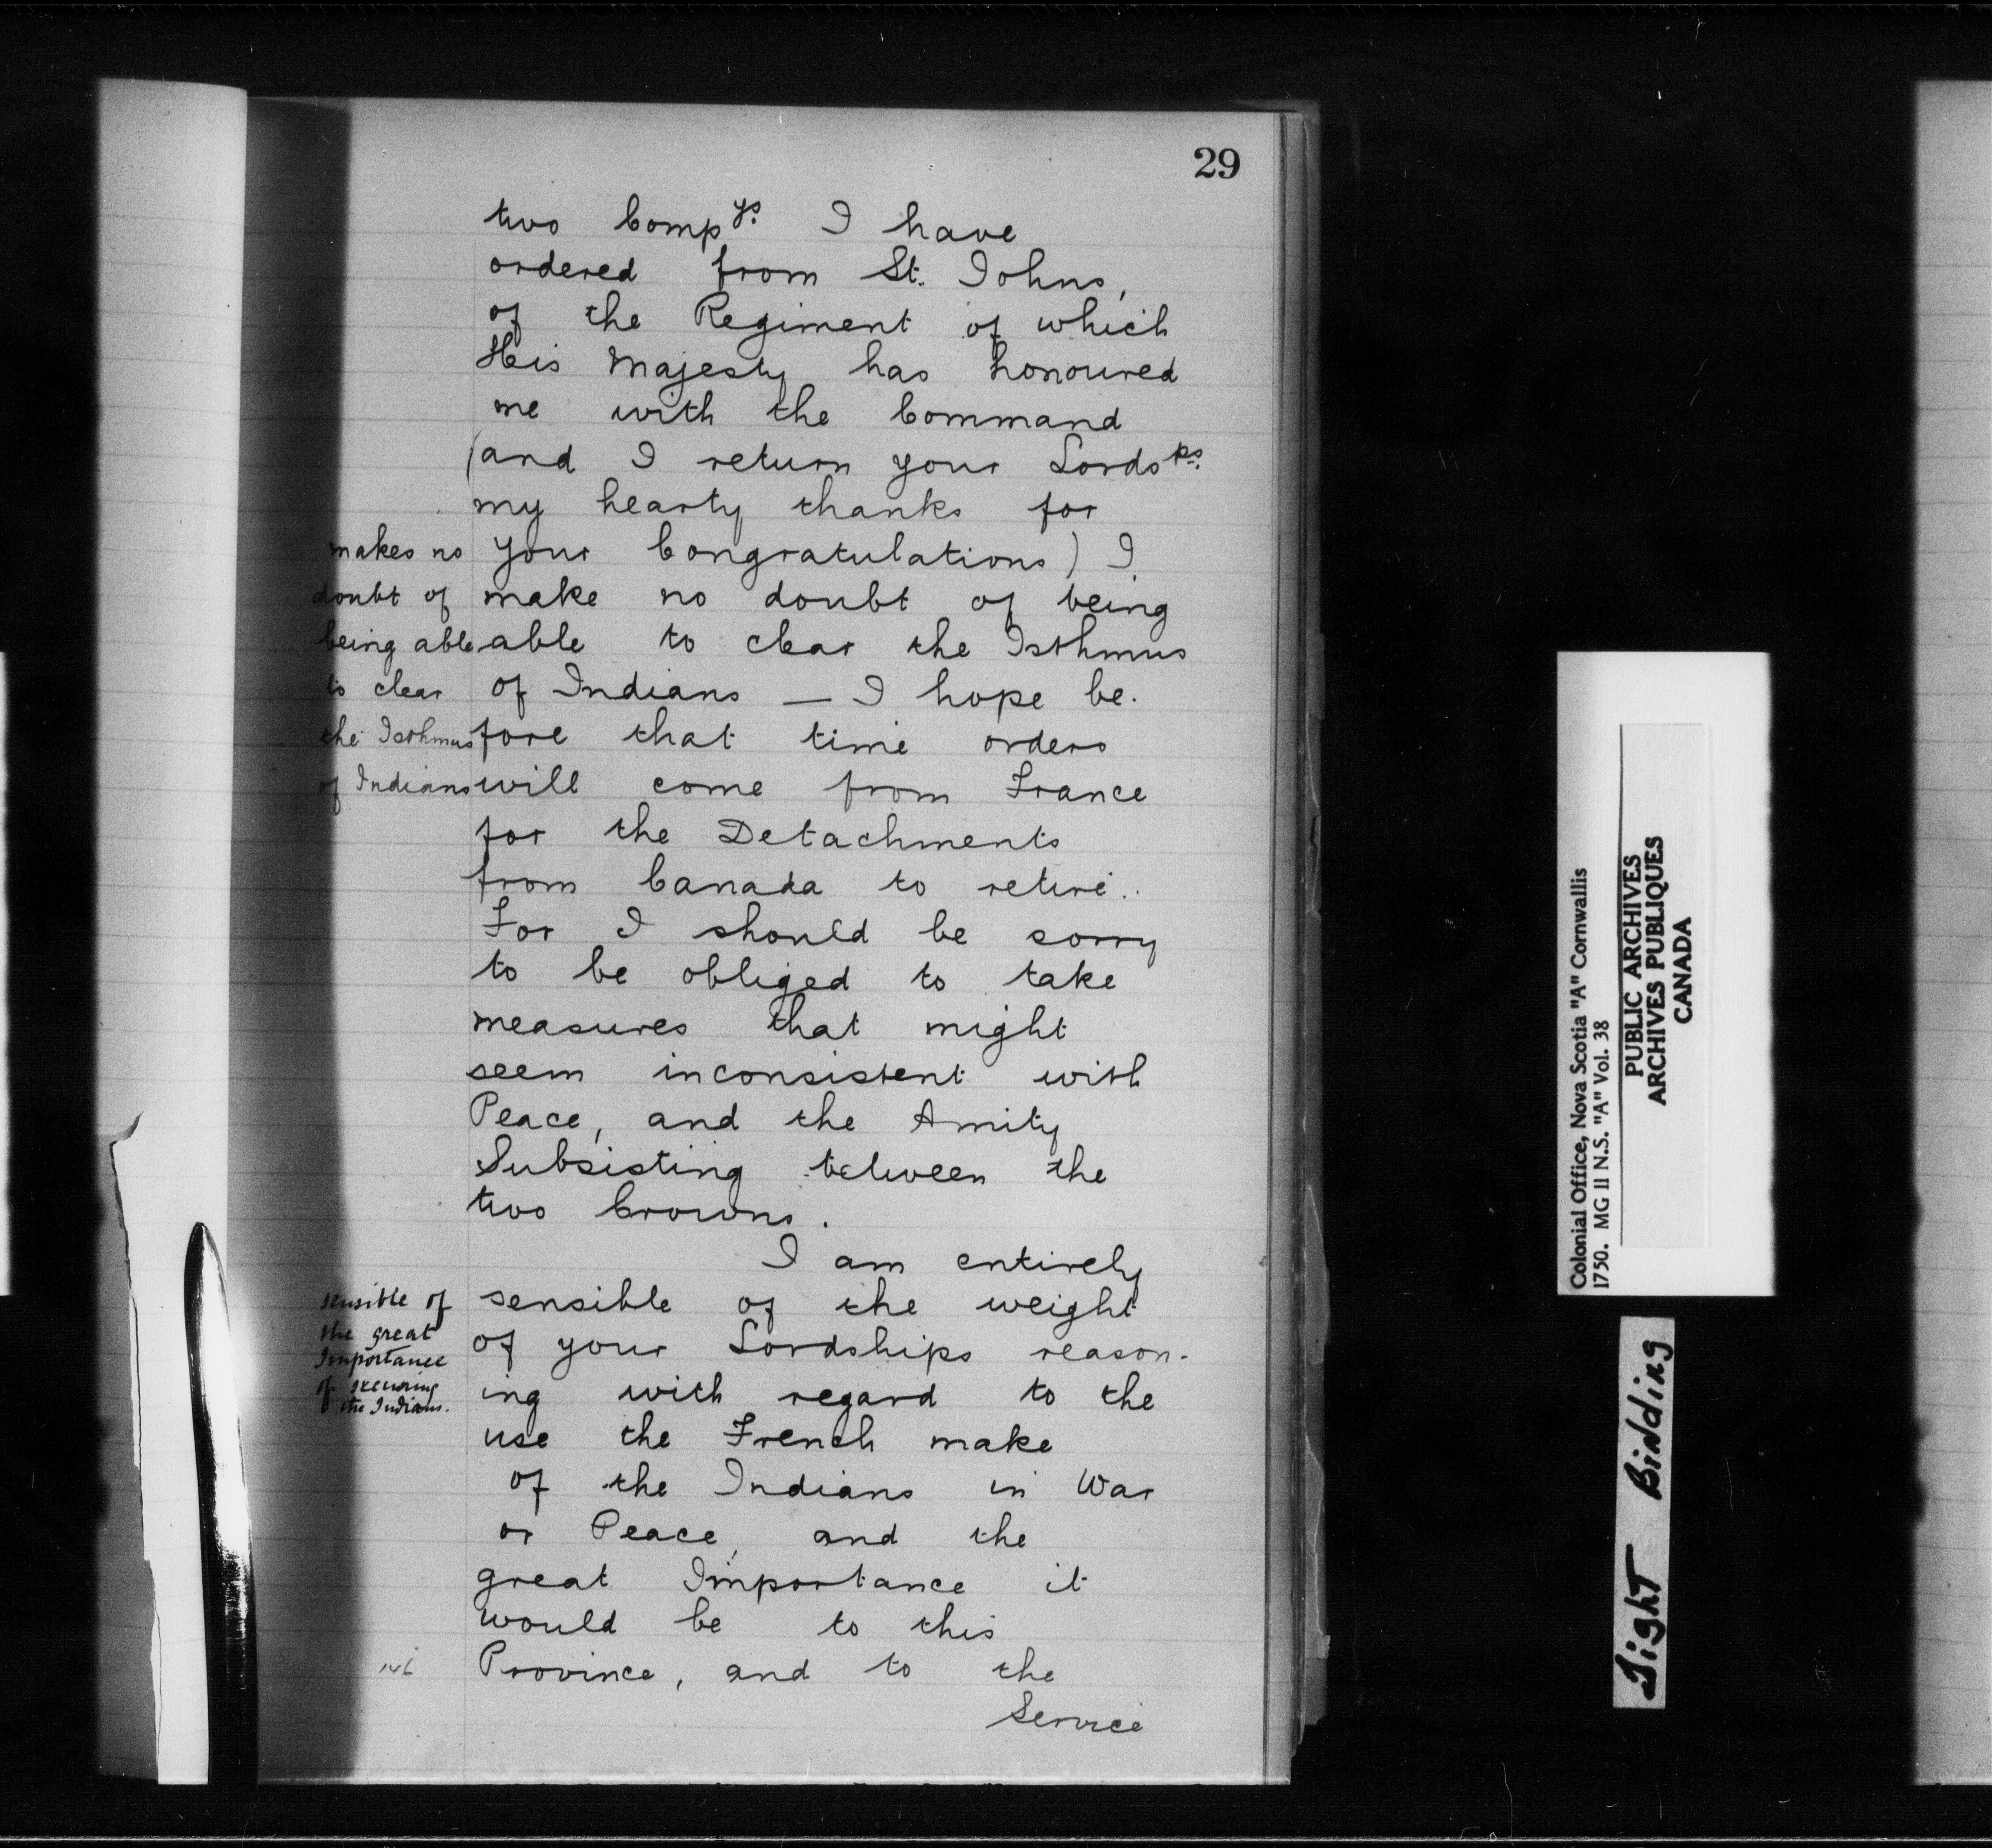 29
two Compys. I have
ordered from St. Johns,
of the Regiment of which
His Majesty has honoured
me with the Command
(and I return your Lordsps.
my hearty thanks for
your Congratulations) I
make no doubt of being
able to clear the Isthmus
of Indians — I hope be-
fore that time orders
will come from France
for the Detachments
from Canada to retire.
For I should be sorry
to be obliged to take
measures that might
seem inconsistent with
Peace, and the Amity
Subsisting between the
two Crowns.
I am entirely
sensible of the weight
of your Lordships reason-
ing with regard to the
use the French make
of the Indians in War
or Peace, and the
great Importance it
would be to this
Province, and to the
Service
makes no
doubt of
being able
to clear
the Isthmus
of Indians
sensible of
the great
Importance
of securing
the Indians.
146
Colonial Office, Nova Scotia "A" Cornwallis
1750. MG II N.S. "A" Vol. 38
PUBLIC ARCHIVES
ARCHIVES PUBLIQUES
CANADA
Tight Bidding